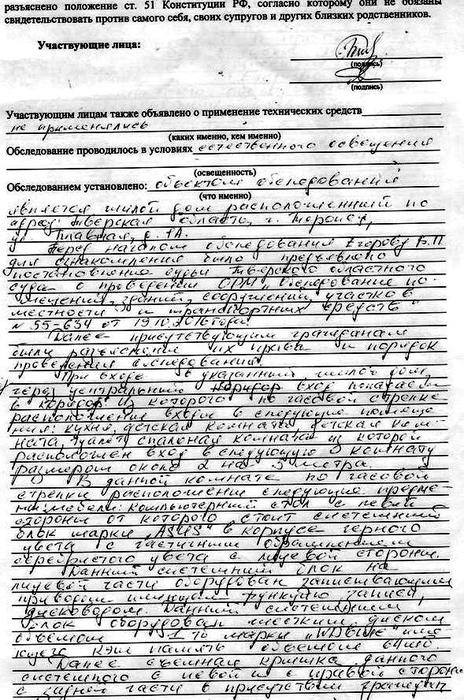 разъяснено положение ст. 51 Конституции РФ, согласно которому они не обязаны
свидетельствовать против самого себя, своих супругов и других близких родственников.
Участвующие лица:
(подпись)
(подпись)
Участвующим лицам также объявлено о применение технических средств
не применялись
(каких именно, кем именно)
Обследование проводилось в условиях естественного освещения
(освещенность)
Обследованием установлено: объектом обследований
(что именно)
является жилой дом, расположенный по
адресу: Тверская область, г. Торопец,
ул. Главная, д. 1А.
Перед началом обследования Егорову В.П.
для ознакомления было предъявлено
постановление судьи Тверского областного
суда о проведении ОРМ "Обследование по-
мещений, зданий, сооружений, участков
местности и транспортных средств"
№ 55-634 от 19.10.2016 года
Далее присутствующим гражданам
были разъяснены их права и порядок
проведения обследования.
При входе в указанный жилой дом,
через центральный вход попадаем
в коридор из которого по часовой стрелке
расположены входы в следующие помеще-
ния: кухня, детская комната, детская ком-
ната, туалет, спальная комната из которой
расположен вход в следующую комнату
размером около 2 на 3 метра.
В данной комнате по часовой
стрелки расположены следующие предме-
ты мебели: компьютерный стол с левой
стороны от которого стоит системный
блок марки "ASUS" в корпусе черного
цвета с частичным обрамлением
серебристого цвета с лицевой стороны.
Данный системный блок на
лицевой части оборудован записывающим
приводом имеющим функцию записи,
дисководом. Данный системный
блок оборудован жестким диском
объемом 1 Тб марки "WD Blue" име-
ющего кэш память объемом 64 мб.
Далее съемная крышка данного
системного с левой и с правой стороны
с задней части в присутствии граждан